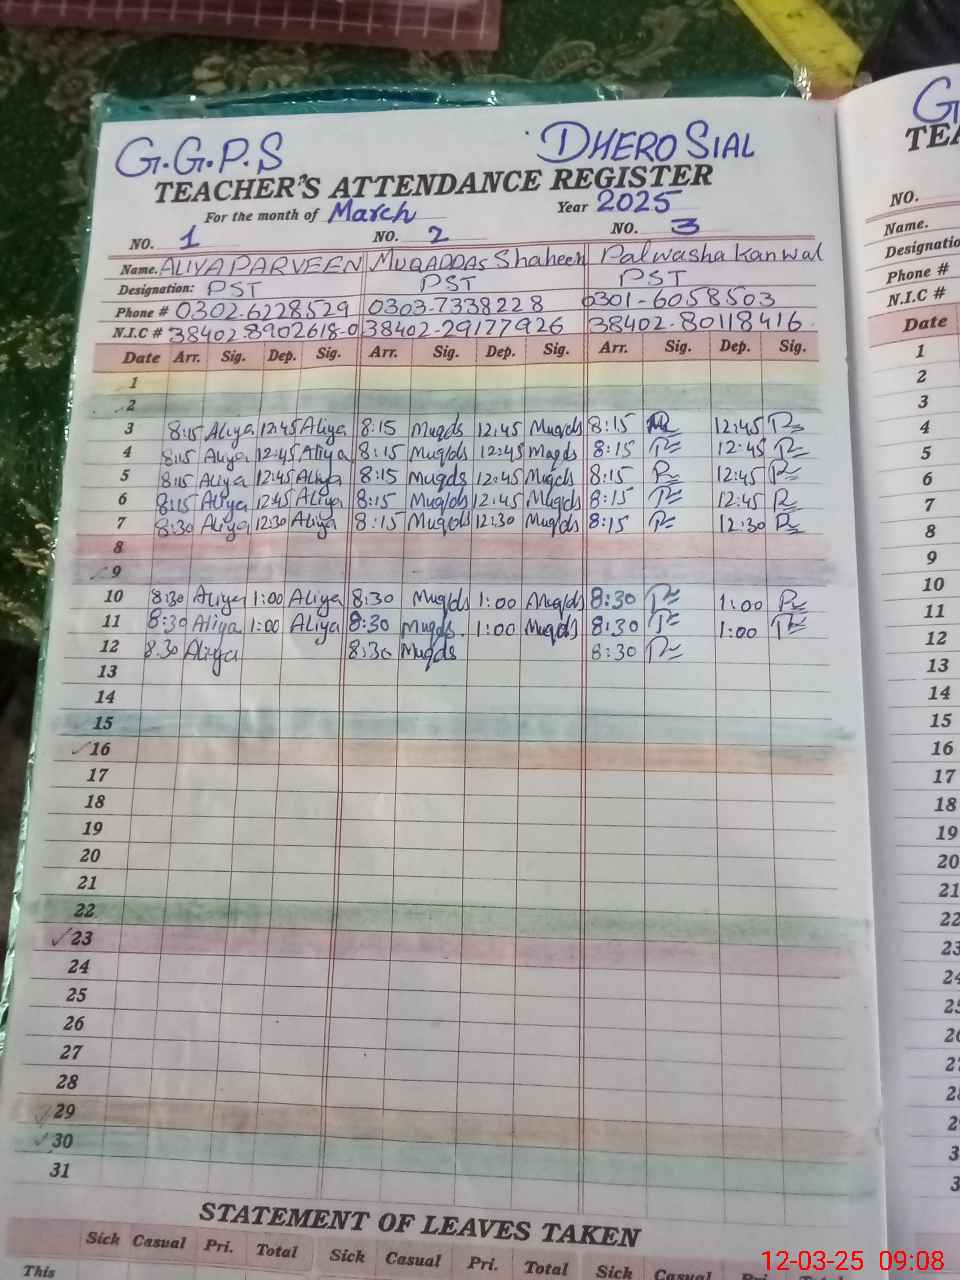 G.G.P.S DHERO SIAL
TEACHER'S ATTENDANCE REGISTER
For the month of March Year 2025
NO. 1 NO. 2 NO. 3
Name. ALIYA PARVEEN MUQADDAS Shaheen Palwasha Kanwal
Designation: PST PST PST
Phone # 0302-6228529 0303-7338228 0301-6058503
N.I.C # 38402-8902618-0 38402-29177926 38402-80118416
Date Arr. Sig. Dep. Sig. Arr. Sig. Dep. Sig. Arr. Sig. Dep. Sig.
1
2
3 8:15 Aliya 12:45 Aliya 8:15 Muqds 12:45 Muqds 8:15 12:45
4 8:15 Aliya 12:45 Aliya 8:15 Muqds 12:45 Muqds 8:15 12:45
5 8:15 Aliya 12:45 Aliya 8:15 Muqds 12:45 Muqds 8:15 12:45
6 8:15 Aliya 12:45 Aliya 8:15 Muqds 12:45 Muqds 8:15 12:45
7 8:30 Aliya 12:30 Aliya 8:15 Muqds 12:30 Muqds 8:15 12:30
8
9
10 8:30 Aliya 1:00 Aliya 8:30 Muqds 1:00 Muqds 8:30 1:00
11 8:30 Aliya 1:00 Aliya 8:30 Muqds 1:00 Muqds 8:30 1:00
12 8.30 Aliya 8:30 Muqds 8:30
13
14
15
16
17
18
19
20
21
22
23
24
25
26
27
28
29
30
31
STATEMENT OF LEAVES TAKEN
Sick Casual Pri. Total Sick Casual Pri. Total Sick Casual Pri.
This
G
TEA
NO.
Name.
Designatio
Phone #
N.I.C #
Date
1
2
3
4
5
6
7
8
9
10
11
12
13
14
15
16
17
18
19
20
21
22
23
24
25
26
12-03-25 09:08